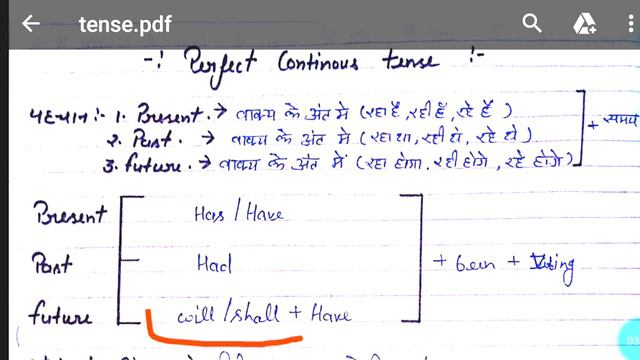 tense.pdf
-: Perfect Continous tense :-
पहचान :- 1. Present. → वाक्य के अंत मे (रहा है, रही है, रहे है)
2. Past. → वाक्य के अंत मे (रहा था, रही थे, रहे थे) + समय
3. future. → वाक्य के अंत में (रहा होगा, रही होगे, रहे होगे)
Present Has / Have
Past Had + been + Ving
future will / shall + Have